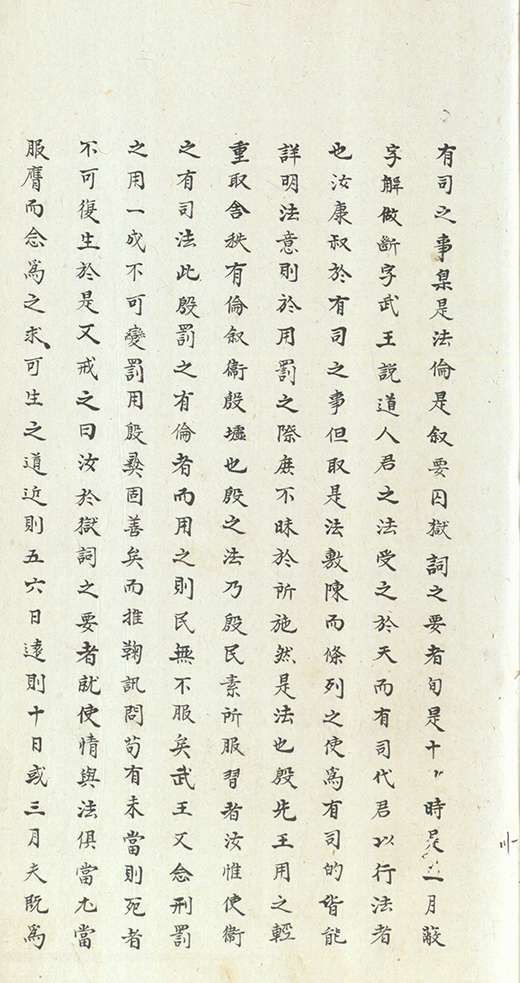 有司之事臬是法倫是叙要囚獄詞之要者旬是十日時是三月蔽
字解做斷字武王説道人君之法受之於天而有司代君以行法者
也汝康叔於有司之事但取是法敷陳而條列之使爲有司的皆能
詳明法意則於用罰之際庶不昧於所施然是法也殷先王用之輕
重取舍秩有倫叙衞殷墟也殷之法乃殷民素所服習者汝惟使衞
之有司法此殷罰之有倫者而用之則民無不服矣武王又念刑罰
之用一成不可變罰用殷彝固善矣而推鞠訊問苟有未當則死者
不可復生於是又戒之曰汝於獄詞之要者就使情與法俱當尤當
服膺而念爲之求可生之道近則五六日遠則十日或三月夫既爲